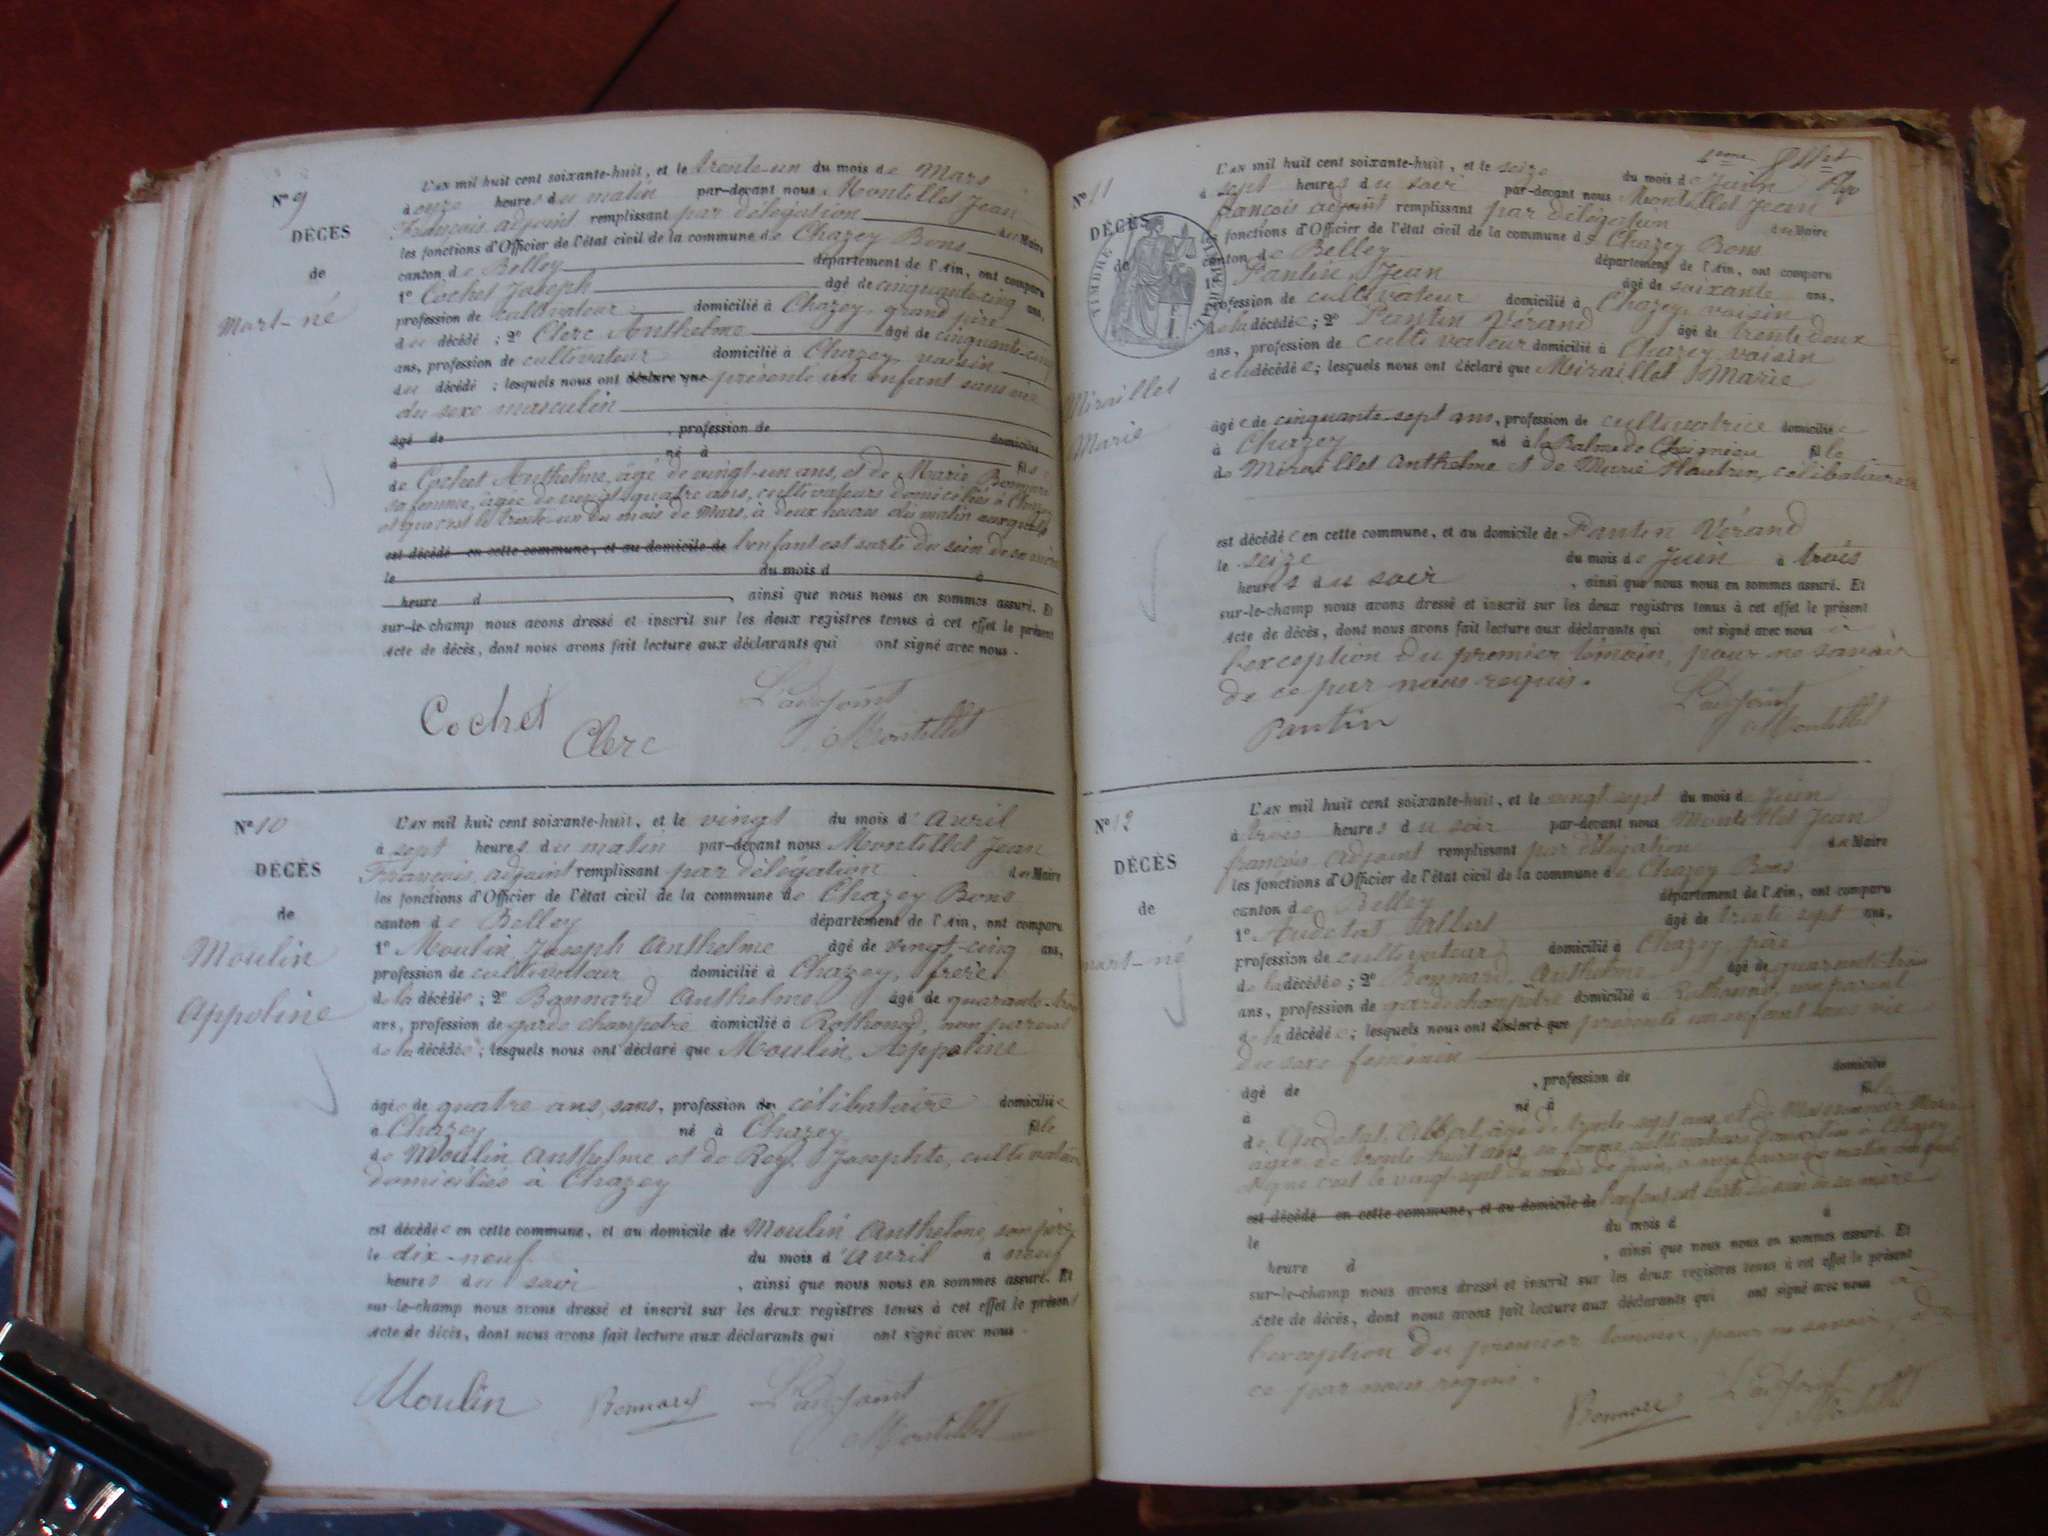 N° 9
DÉCÈS
de
Mort-né
L'AN mil huit cent soixante-huit, et le trente-un du mois de Mars
à onze heures du matin par-devant nous Montillet Jean
François adjoint remplissant par délégation du Maire
les fonctions d'Officier de l'état civil de la commune de Chazey Bons
canton de Belley département de l'Ain, ont comparu
1° Cochet Joseph âgé de cinquante-cinq ans,
profession de cultivateur domicilié à Chazey, grand père
du décédé ; 2° Clerc Anthelme âgé de cinquante-cinq
ans, profession de cultivateur domicilié à Chazey, voisin
du décédé ; lesquels nous ont déclaré que présenté un enfant sans vie
du sexe masculin
âgé de , profession de domicilié
à né à fils
de Cochet Anthelme, âgé de vingt-un ans, et de Marie Bonnard
sa femme, âgée de vingt quatre ans, cultivateurs domiciliés à Chazey
et que c'est le trente-un du mois de Mars, à deux heures du matin
est décédé en cette commune, et au domicile de l'enfant est sorti du sein de sa mère
le du mois d à
heure d , ainsi que nous nous en sommes assuré. Et
sur-le-champ nous avons dressé et inscrit sur les deux registres tenus à cet effet le présent
Acte de décès, dont nous avons fait lecture aux déclarants qui ont signé avec nous.
Cochet Clerc L'adjoint
Montillet
N° 10
DÉCÈS
de
Moulin
Appoline
L'AN mil huit cent soixante-huit, et le vingt du mois d'avril
à sept heures du matin par-devant nous Montillet Jean
François, adjoint remplissant par délégation du Maire
les fonctions d'Officier de l'état civil de la commune de Chazey Bons
canton de Belley département de l'Ain, ont comparu
1° Moulin Joseph Anthelme âgé de vingt-cinq ans,
profession de cultivateur domicilié à Chazey, frère
de la décédée ; 2° Bonnard Anthelme âgé de quarante-trois
ans, profession de garde champêtre domicilié à Rothonod, non parent
de la décédée ; lesquels nous ont déclaré que Moulin Appoline
âgée de quatre ans, sans, profession de célibataire domiciliée
à Chazey né à Chazey fille
de Moulin Anthelme et de Rey Josephte, cultivateurs
domiciliés à Chazey
est décédée en cette commune, et au domicile de Moulin Anthelme, son père
le dix-neuf du mois d'avril à neuf
heures du soir , ainsi que nous nous en sommes assuré. Et
sur-le-champ nous avons dressé et inscrit sur les deux registres tenus à cet effet le présent
Acte de décès, dont nous avons fait lecture aux déclarants qui ont signé avec nous.
Moulin Bonnard L'adjoint
Montillet
N° 11
DÉCÈS
de
TIMBRE IMPERIAL
Miraillet
Marie
L'AN mil huit cent soixante-huit, et le seize du mois de Juin
à sept heures du soir par-devant nous Montillet Jean
françois adjoint remplissant par délégation du Maire
les fonctions d'Officier de l'état civil de la commune de Chazey Bons
canton de Belley département de l'Ain, ont comparu
1° Pantin Jean âgé de soixante ans,
profession de cultivateur domicilié à Chazey, voisin
de la décédée ; 2° Pantin Vérand âgé de trente deux
ans, profession de cultivateur domicilié à Chazey, voisin
de la décédée ; lesquels nous ont déclaré que Miraillet Marie
âgée de cinquante-sept ans, profession de cultivatrice domiciliée
à Chazey né à la Balme de Cheignieu fille
de Miraillet Anthelme et de Marie célibataire
est décédée en cette commune, et au domicile de Pantin Vérand
le seize du mois de Juin à trois
heures du soir , ainsi que nous nous en sommes assuré. Et
sur-le-champ nous avons dressé et inscrit sur les deux registres tenus à cet effet le présent
Acte de décès, dont nous avons fait lecture aux déclarants qui ont signé avec nous à
l'exception du premier témoin, pour ne savoir
de ce par nous requis.
Pantin L'adjoint
Montillet
N° 12
DÉCÈS
de
mort-né
L'AN mil huit cent soixante-huit, et le vingt sept du mois de Juin
à trois heures du soir par-devant nous Montillet Jean
françois adjoint remplissant par délégation du Maire
les fonctions d'Officier de l'état civil de la commune de Chazey Bons
canton de Belley département de l'Ain, ont comparu
1° Albert âgé de trente sept ans,
profession de cultivateur domicilié à Chazey, père
de la décédée ; 2° Bonnard Anthelme âgé de quarante-trois
ans, profession de garde champêtre domicilié à Rothonod, non parent
de la décédée ; lesquels nous ont déclaré que présenté un enfant sans vie
du sexe féminin
âgé de , profession de domicilié
à né à fille
de Albert, âgé de trente-sept ans, et de Marie
âgée de trente huit ans, sa femme, cultivateurs domiciliés à Chazey
et que c'est le vingt-sept du mois de juin, à onze heures du matin
est décédé en cette commune, et au domicile de l'enfant est sorti du sein de sa mère
le du mois d à
heure d , ainsi que nous nous en sommes assuré. Et
sur-le-champ nous avons dressé et inscrit sur les deux registres tenus à cet effet le présent
Acte de décès, dont nous avons fait lecture aux déclarants qui ont signé avec nous à
l'exception du premier témoin pour ne savoir, de
ce par nous requis.
Bonnard L'adjoint
Montillet